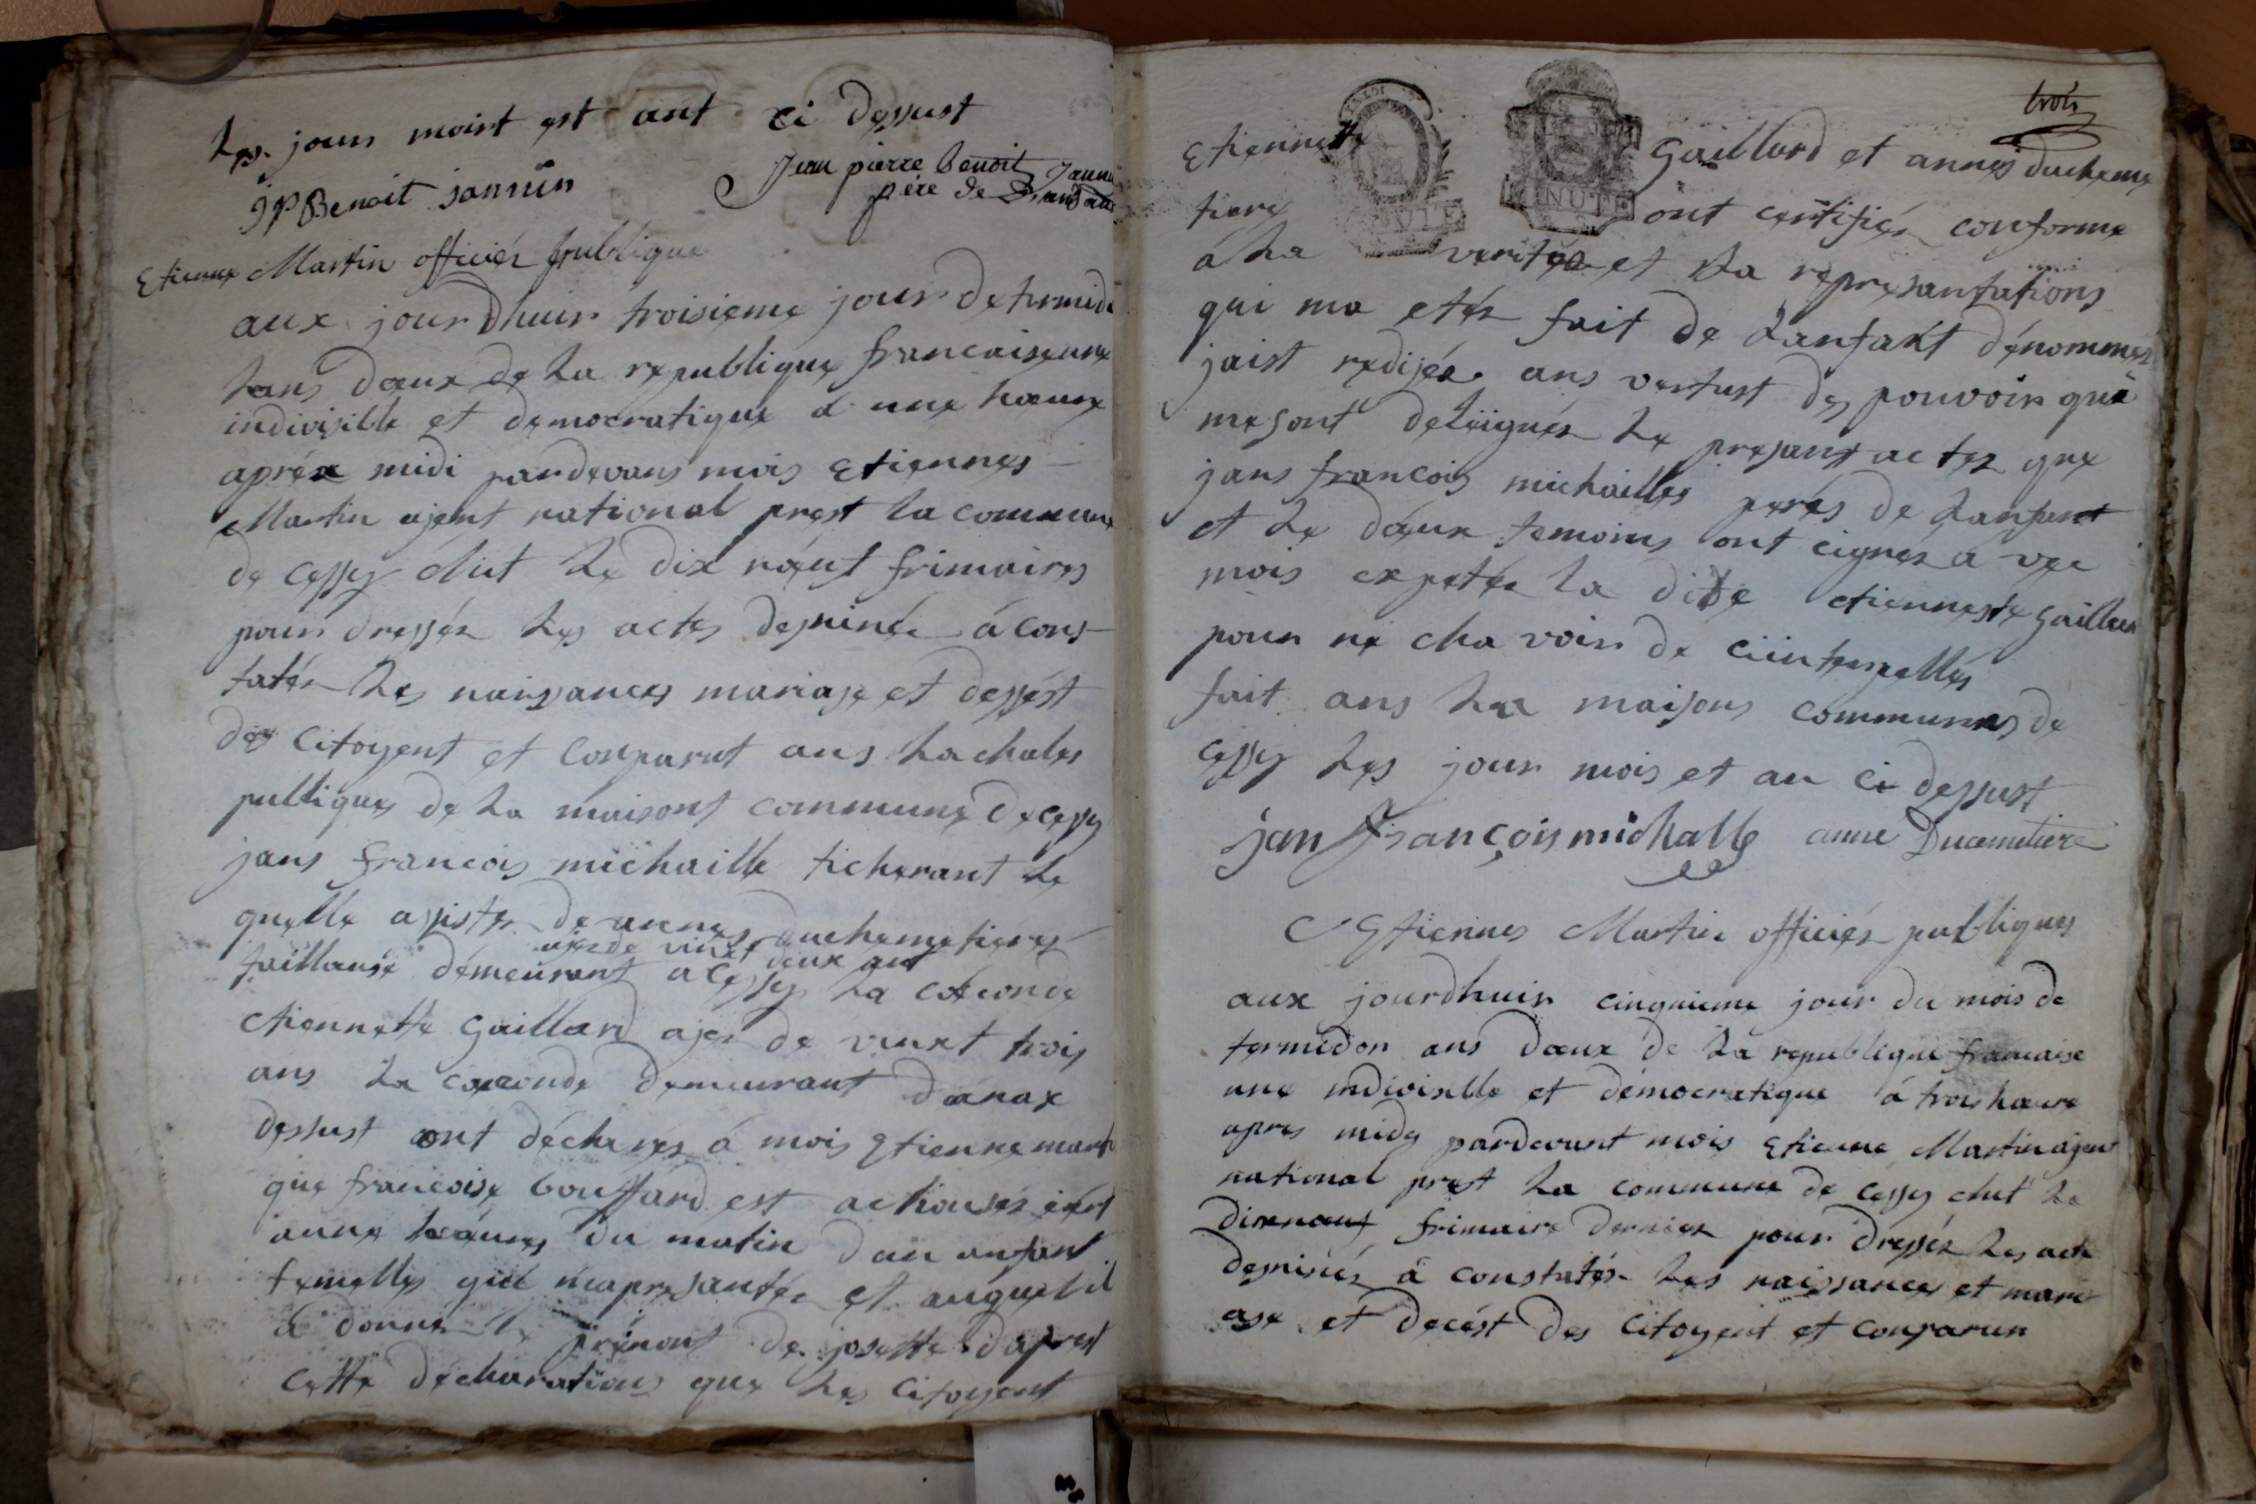 Les jours moist est ant ci dessust
jpBenoit jannin
Jean pierre benoit
père de
Etienne Martin officiér publique
aux jourdhuir troisieme jour de
lans deux de la republique francaise une
indivisible et democratique à une heure
aprée midi pardevans mois Etiennes
Martin ajent national prest la commune
de cessy élut le dix nëuf frimaires
pour dressér les actes desninée à cons
tatér les naissances mariaje et dessést
des Citoyent et Conparut ans la chales
publiques de la maisons commune de cessy
jans francois michaille ticherant le
quelle assiste de annes duchemetieres
ajes de vinxt deux ant
taillause démeurant a Cessy la
etiennette Gaillard ajes de vinxt trois
ans la ceconde demeurant
dessust ont déclarés à mois Etienne mart
que francoise bouffard est
heaures du matin dau anfant
femelles quil et auquel il
à donné le prénont de josette daprest
cette déclarations que les Citoyent
trois
Etiennette Gaillard et annes ducheme
tiere MINUTE ont certifiér conforme
à la veritée et La représantations
qui ma etér fait de Lanfant dénommér
jaist redijée ans vertust des pouvoir qui
me sont deléignés Le présant actes que
jans francois michailles perés de Lanfant
et Le deux temoins ont cignés à vec
mois exsetée la dite etiennette Gaillar
pour ne cha voir de
fait ans La maisons communes de
cessy Les jour mois et an ci dessust
jan françois michalle anne Ducemetiere
Etiennes Martin officiér publiques
aux jourdhuir cinquieme jour du mois de
termidor ans deux de la republique francaise
une indivisible et démocratique á trois heure
apres midy pardevant mois Etienne Martin ajent
national prest La commune de cessy elut Le
dixneuf frimaire dernier pour dressér Les acte
desninés à constatér Les naissances et mari
aje et decést des Citoyent et conparun